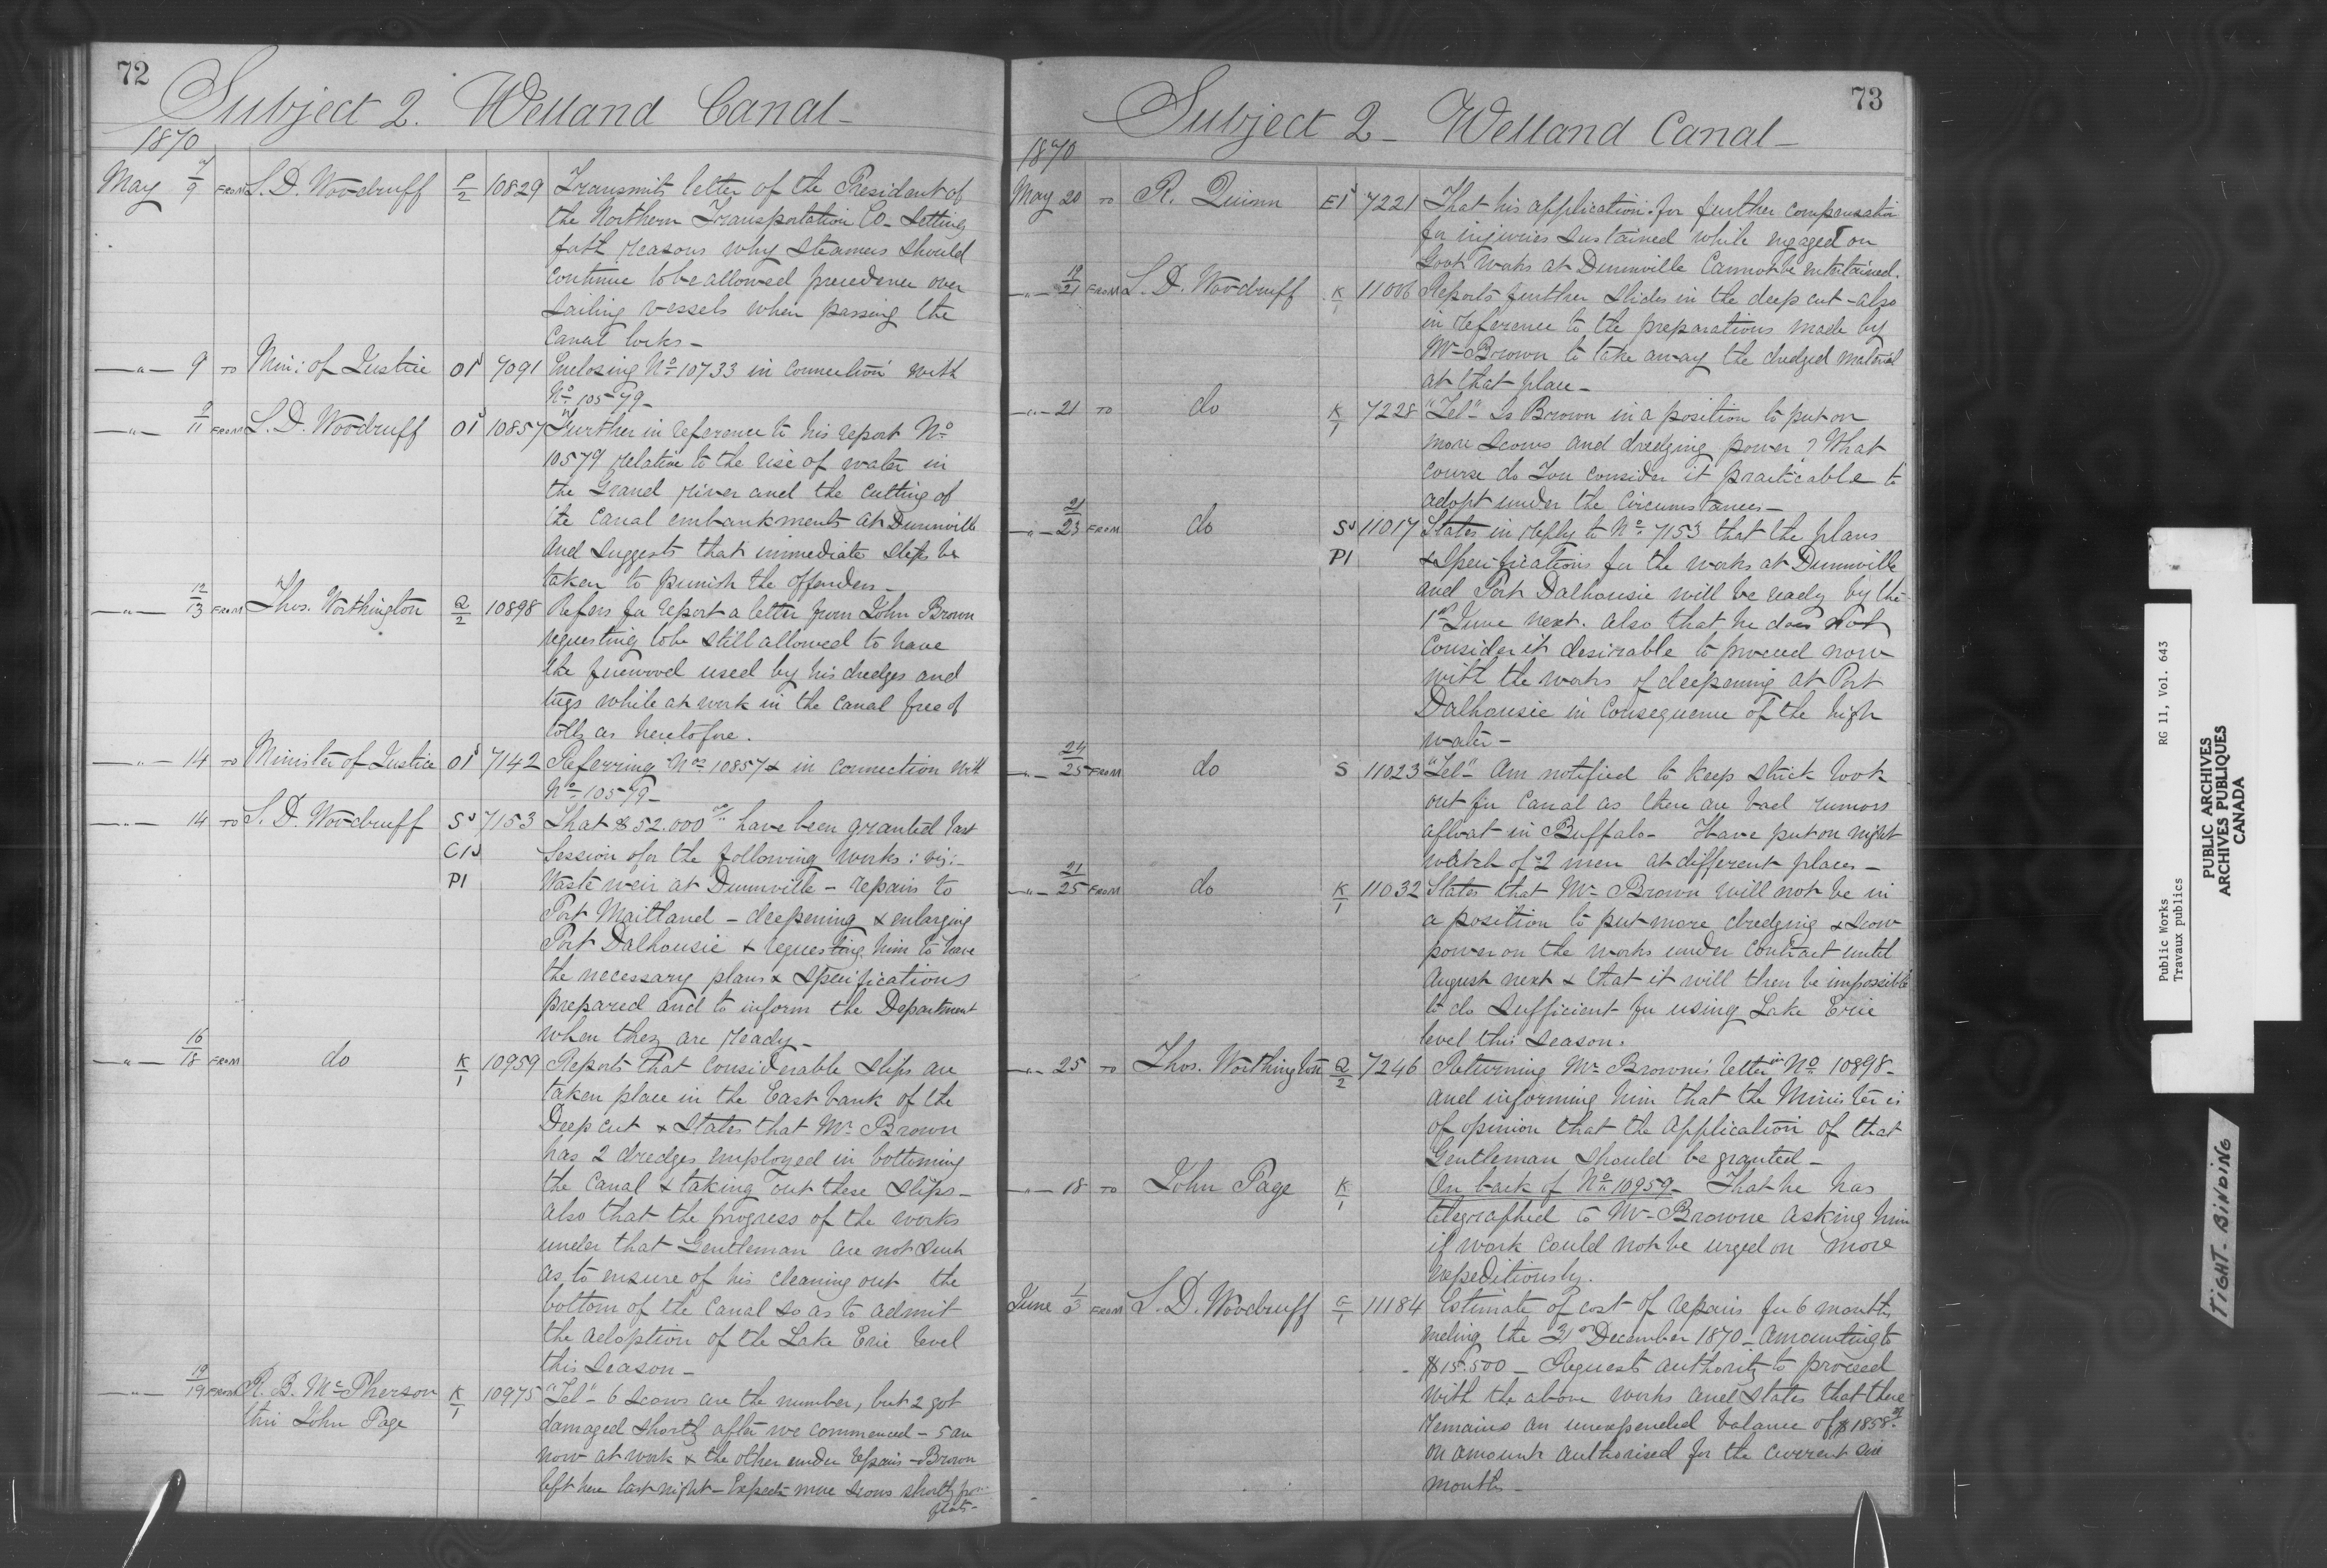 72
Subject 2. Welland Canal-
1870
May 7/9 FROM S. D. Woodruff P/2 10829 Transmits letter of the President of
the Northern Transportation Co- Setting
forth reasons why Steamers should
continue to be allowed precedence over
sailing vessels when passing the
Canal locks-
-"- 9 TO Min: of Justice 01 7091 Enclosing No 10733 in connection with
No 10579-
-"- 9/11 FROM S. D. Woodruff 01 10857 Further in reference to his report No
10579 relative to the rise of water in
the Grand River and the Cutting of
the Canal embankments at Dunnville
and suggests that immediate steps be
taken to punish the offenders-
-"- 12/13 FROM Thos. Worthington Q/2 10898 Refers for report a letter from John Brown
requesting to be still allowed to have
the firewood used by his dredges and
tugs while at work in the Canal free of
tolls as heretofore.
-"- 14 TO Minister of Justice 01 7142 Referring Nos 10857 & in connection with
No 10579-
-"- 14 TO S. D. Woodruff S 7153 That $52.000 have been granted last
C1 Session for the following works: viz:-
P1 Waste weir at Dunnville - repairs to
Port Maitland - deepening & enlarging
Port Dalhousie & requesting him to have
the necessary plans & Specifications
prepared and to inform the Department
when they are ready-
-"- 16/18 FROM do K/1 10959 Reports that Considerable Slips are
taken place in the East bank of the
Deep cut & States that Mr Brown
has 2 dredges employed in bottoming
the Canal & taking out these Slips-
also that the progress of the works
under that Gentleman are not such
as to ensure of his cleaning out the
bottom of the Canal so as to admit
the adoption of the Lake Erie level
this Season-
-"- 19/19 FROM R. B. McPherson K/1 10975 "Tel"- 6 Scows are the number, but 2 got
thro John Page damaged shortly after we commenced - 5 are
now at work & the other under repairs - Brown
left here last night - Expects more scows shortly
73
Subject 2- Welland Canal-
1870
May 20 TO R. Quinn E1 7221 That his application for further compensation
for injuries sustained while engaged on
Govt Works at Dunnville Cannot be entertained.
-"- 19/21 FROM S. D. Woodruff K/1 11006 Reports further Slides in the deep cut - also
in reference to the preparations made by
Mr Brown to take away the dredged material
at that place-
-"- 21 TO do K/1 7228 "Tel"- Is Brown in a position to put on
more Scows and dredging power? What
course do You consider it practicable to
adopt under the Circumstances-
-"- 21/23 FROM do S 11017 States in reply to No 7153 that the plans
P1 & Specifications for the works at Dunnville
and Port Dalhousie will be ready by the
1st June next. Also that he does not
Consider it desirable to proceed now
with the works of deepening at Port
Dalhousie in Consequence of the high
water-
-"- 24/25 FROM do S 11023 "Tel"- Am notified to keep strick look
out for Canal as there are bad rumors
afloat in Buffalo- Have put on night
watch of 2 men at different places-
-"- 21/25 FROM do K/1 11032 States that Mr Brown will not be in
a position to put more dredging & scow
power on the works under Contract until
August next & that it will then be impossible
to do Sufficient for using Lake Erie
level this Season.
-"- 25 TO Thos. Worthington Q/2 7246 Returning Mr Browne's letter in No 10898-
and informing him that the Minister is
of opinion that the Application of that
Gentleman should be granted-
-"- 18 TO John Page K/1 On back of No 10959- That he has
telegraphed to Mr Browne asking him
if work could not be urged on more
expeditiously.
June 1/3 FROM S. D. Woodruff C/1 11184 Estimate of cost of repairs for 6 months
ending the 31st December 1870 - Amounting to
$15.500 - Requests authority to proceed
with the above works and States that there
remains an unexpended balance of $1858
on amount authorised for the current Six
months-
Public Works RG 11, Vol. 643
Travaux publics
PUBLIC ARCHIVES
ARCHIVES PUBLIQUES
CANADA
TIGHT-BINDING